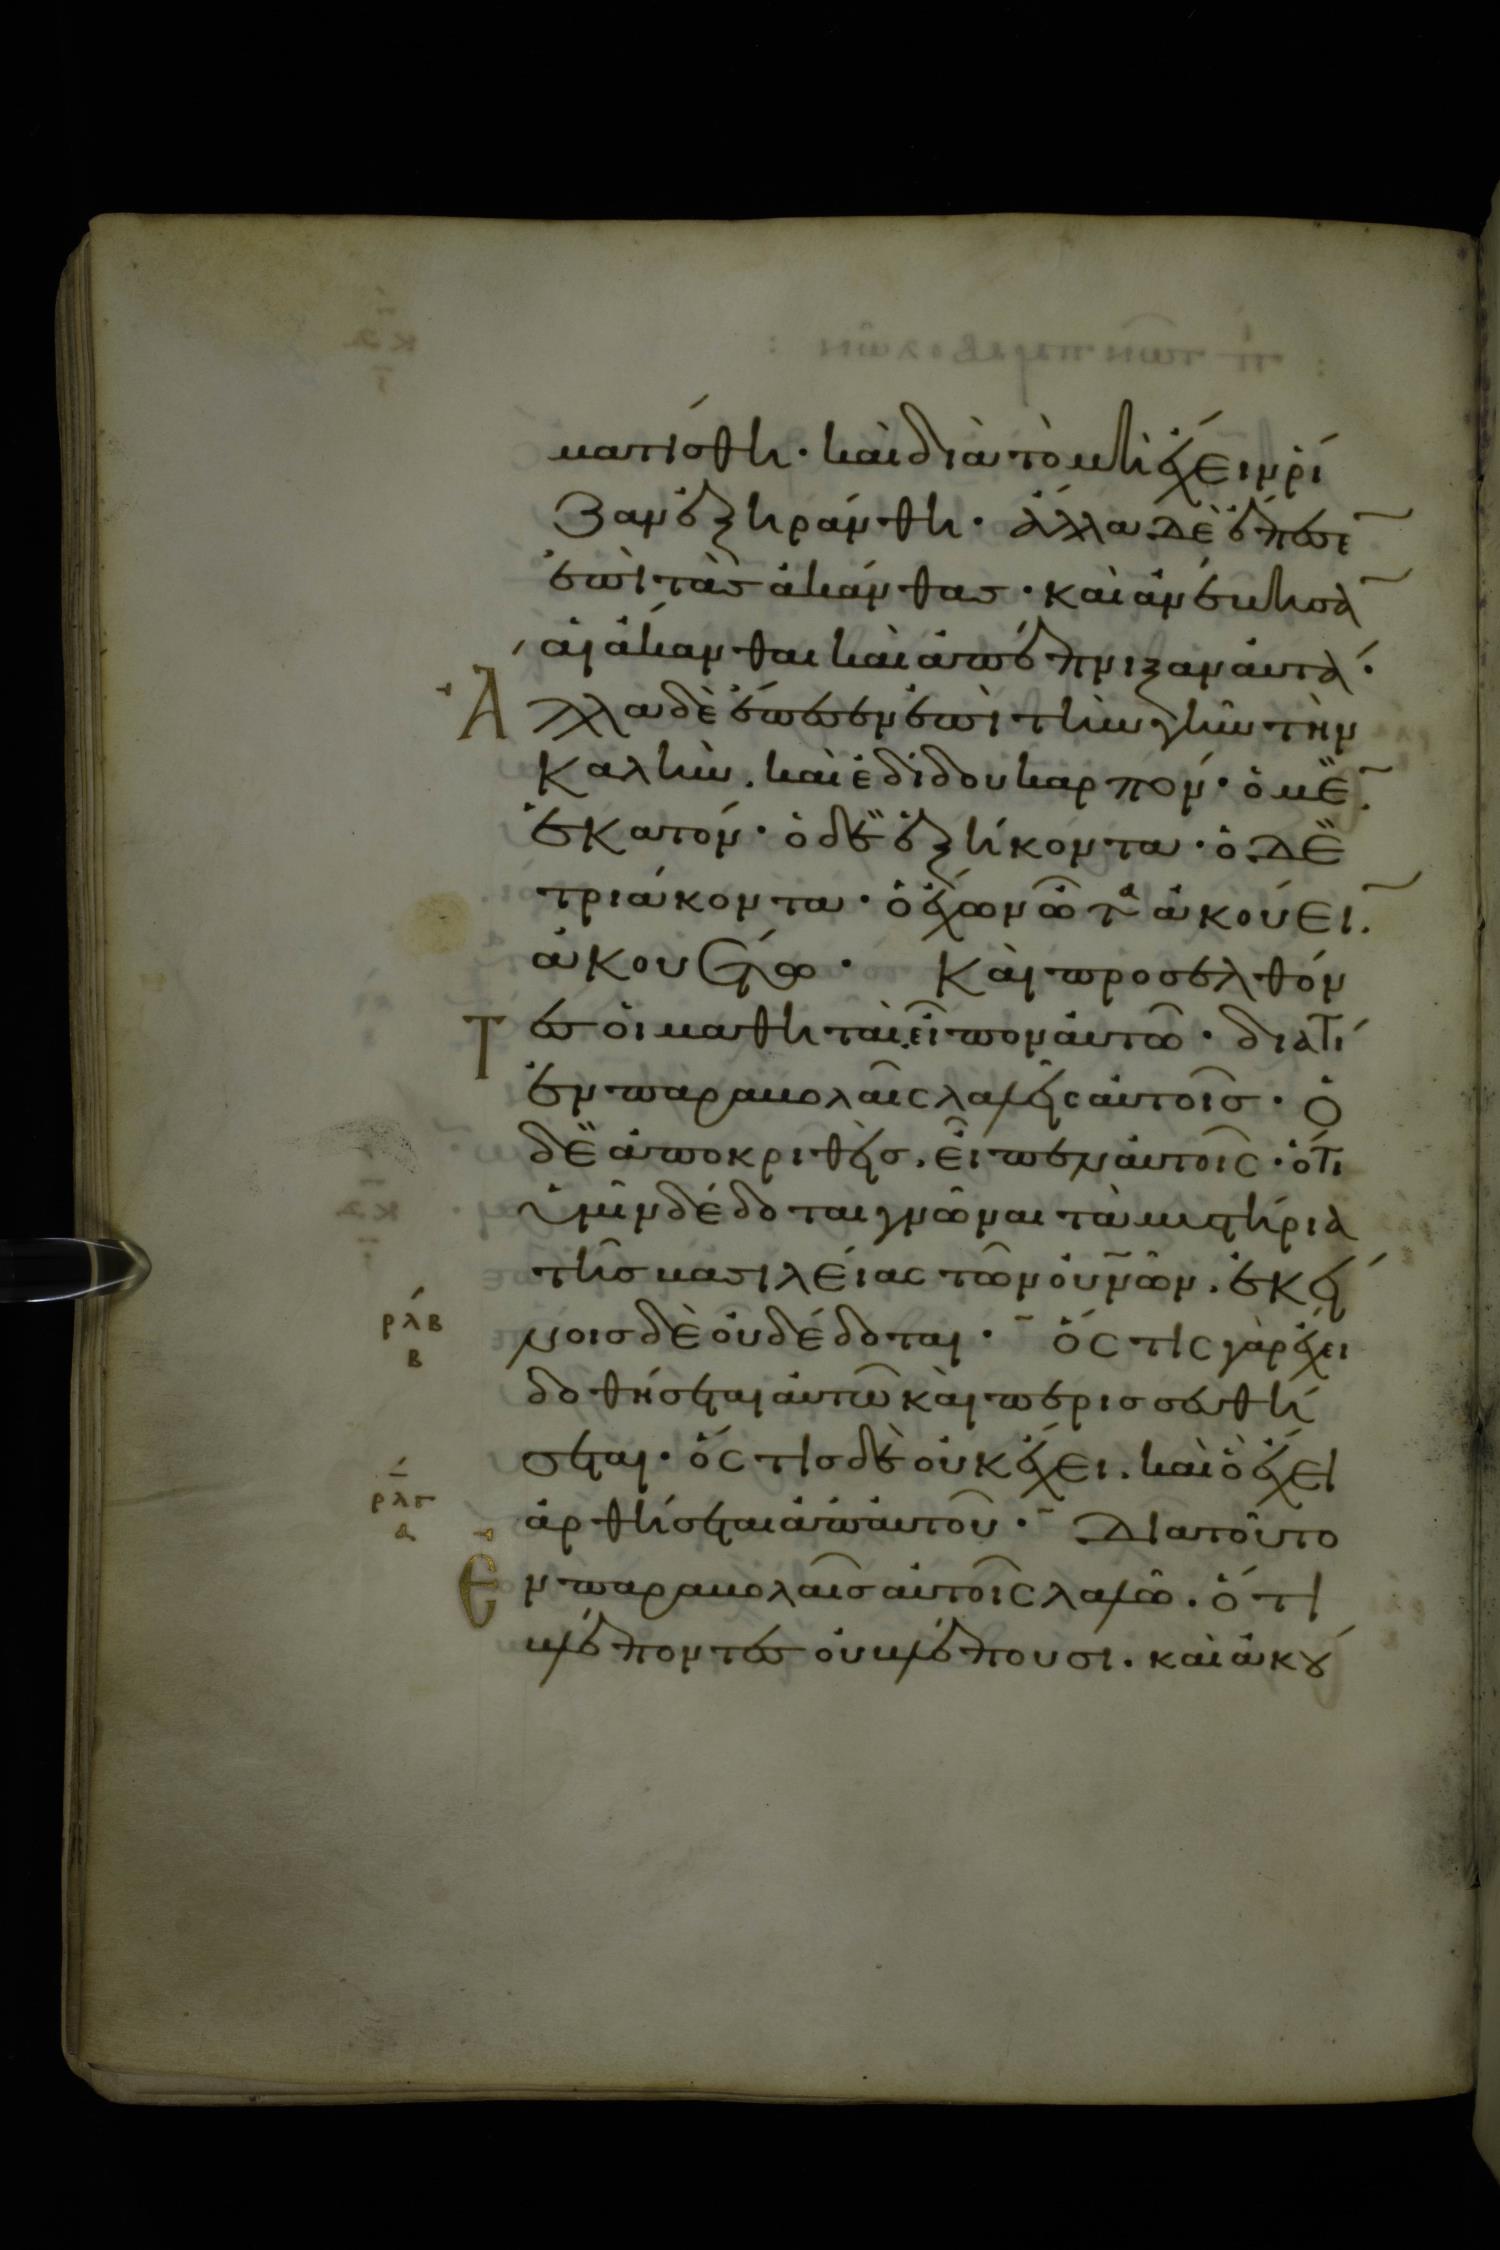 ματίσθη· καὶ διὰ τὸ μὴ ἔχειν ῥί
ζαν ἐξηράνθη· ἄλλα δὲ ἔπεσε̅
ἐπὶ τὰς ἀκάνθας· καὶ ἀνέβησα̅
αἱ ἄκανθαι καὶ ἀπέπνιξαν αὐτά·
Ἄλλα δὲ ἔπεσεν ἐπὶ τὴν γῆν τὴν
καλὴν. καὶ ἐδίδου καρπόν· ὁ με̅.
ἑκατόν· ὁ δὲ ἑξήκοντα· ὁ δὲ
τριάκοντα· ὁ ἔχων ὦτα ἀκούει̅.
ἀκουέτω· Καὶ προσελθόν
τες οἱ μαθηταὶ εἶπον αὐτῶ· διατί
ἐν παραβολαῖς λαλεῖς αὐτοῖς· ὁ
δὲ ἀποκριθεὶς. εἶπεν αὐτοῖς· ὅτι
ὑμῖν δέδοται γνῶναι τὰ μυστήρια
τῆς βασιλείας τῶν οὐ̅νῶν. ἐκεί
νοις δὲ οὐ δέδοται· Ὅστις γὰρ ἔχει
ρλβ
β
δοθήσεται αὐτῶ καὶ περισσευθή
σεται· ὅστις δὲ οὐκ ἔχει. καὶ ὃ ἔχει
ρλγ
α
ἀρθήσεται ἀπ' αὐτοῦ· Διατοῦτο
ἐν παραβολαῖς αὐτοῖς λαλῶ. ὅτι
βλέποντες οὐ βλέπουσι. καὶ ἀκού